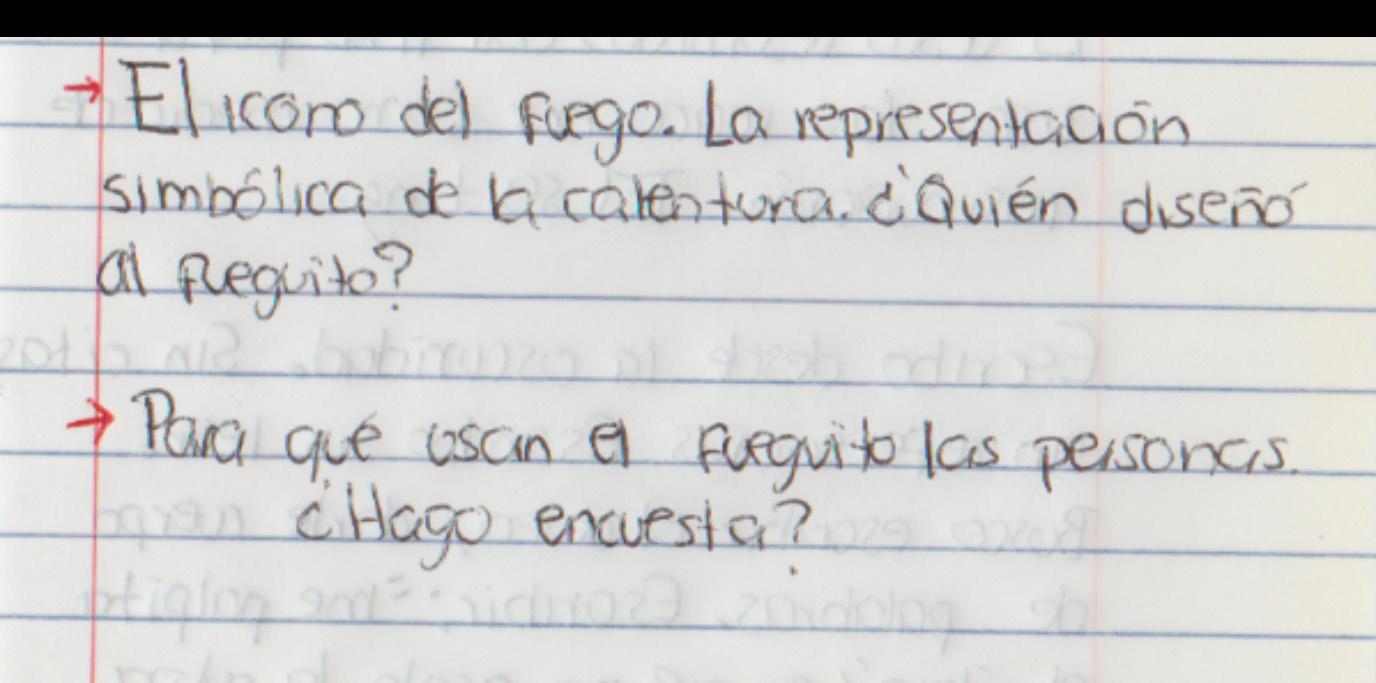 → El icono del fuego. La representación
simbólica de la calentura. ¿Quién diseñó
al fueguito?
→ Para qué usan el fueguito las personas.
¿Hago encuesta?